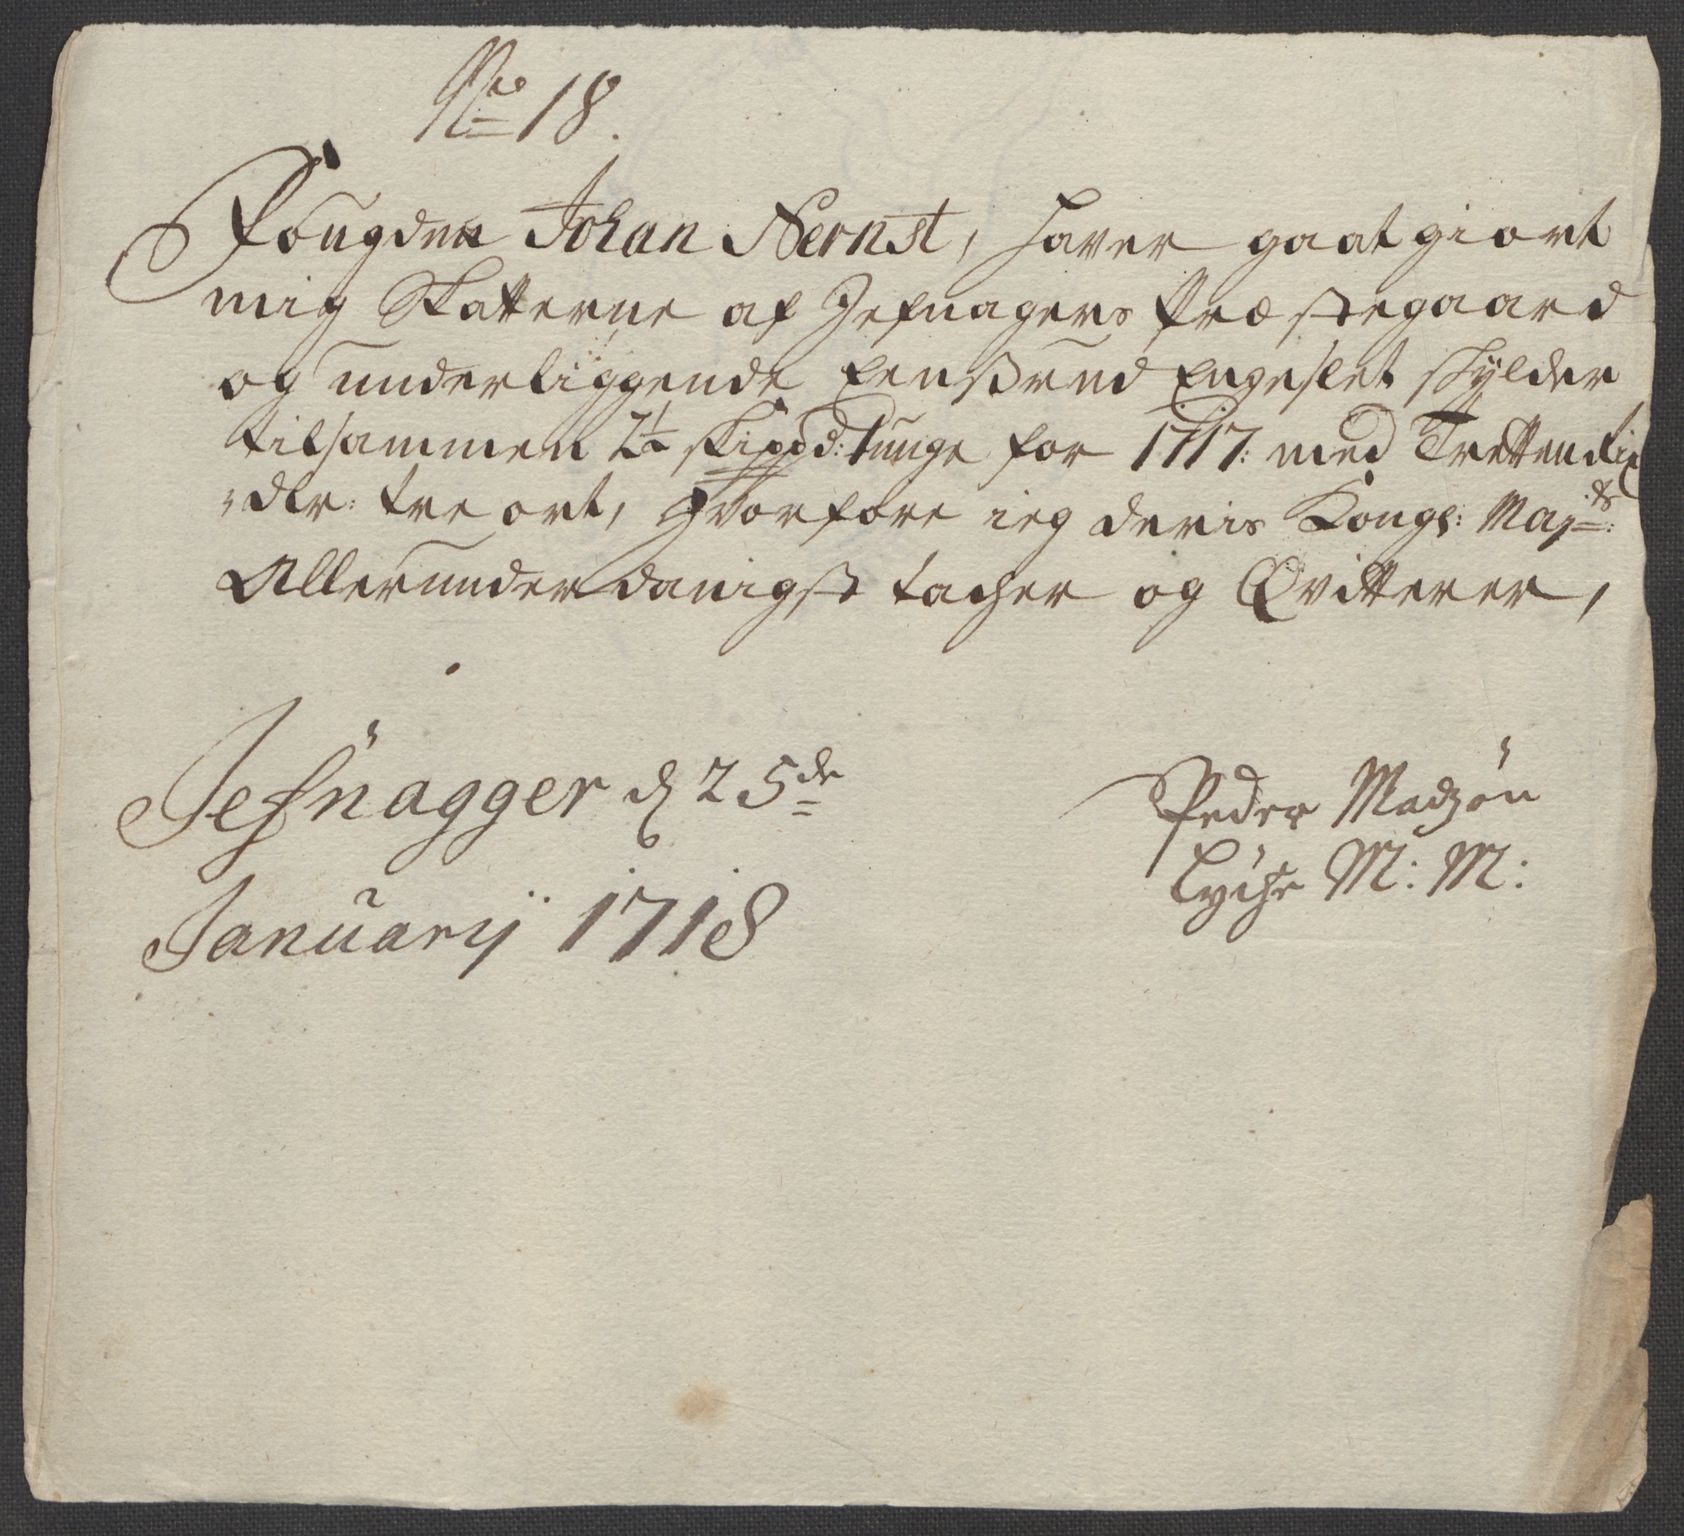 No 18.
Fougden Johan Nernst, haver gaat giort
mig Skatterne af Jefnagers Præstegaard
og underliggende Engeslet skylder
tilsammen 2½ skippd: tunge for 1717: med Tretten Rix
dlr: tre ort, Hvorfore ieg deris Kongl: Maj:ts
Allerunderdanigst tacher og Qvitterer,
Jefnagger d 25de
Januarij 1718
Peder Madzøn
Lyche M: M: